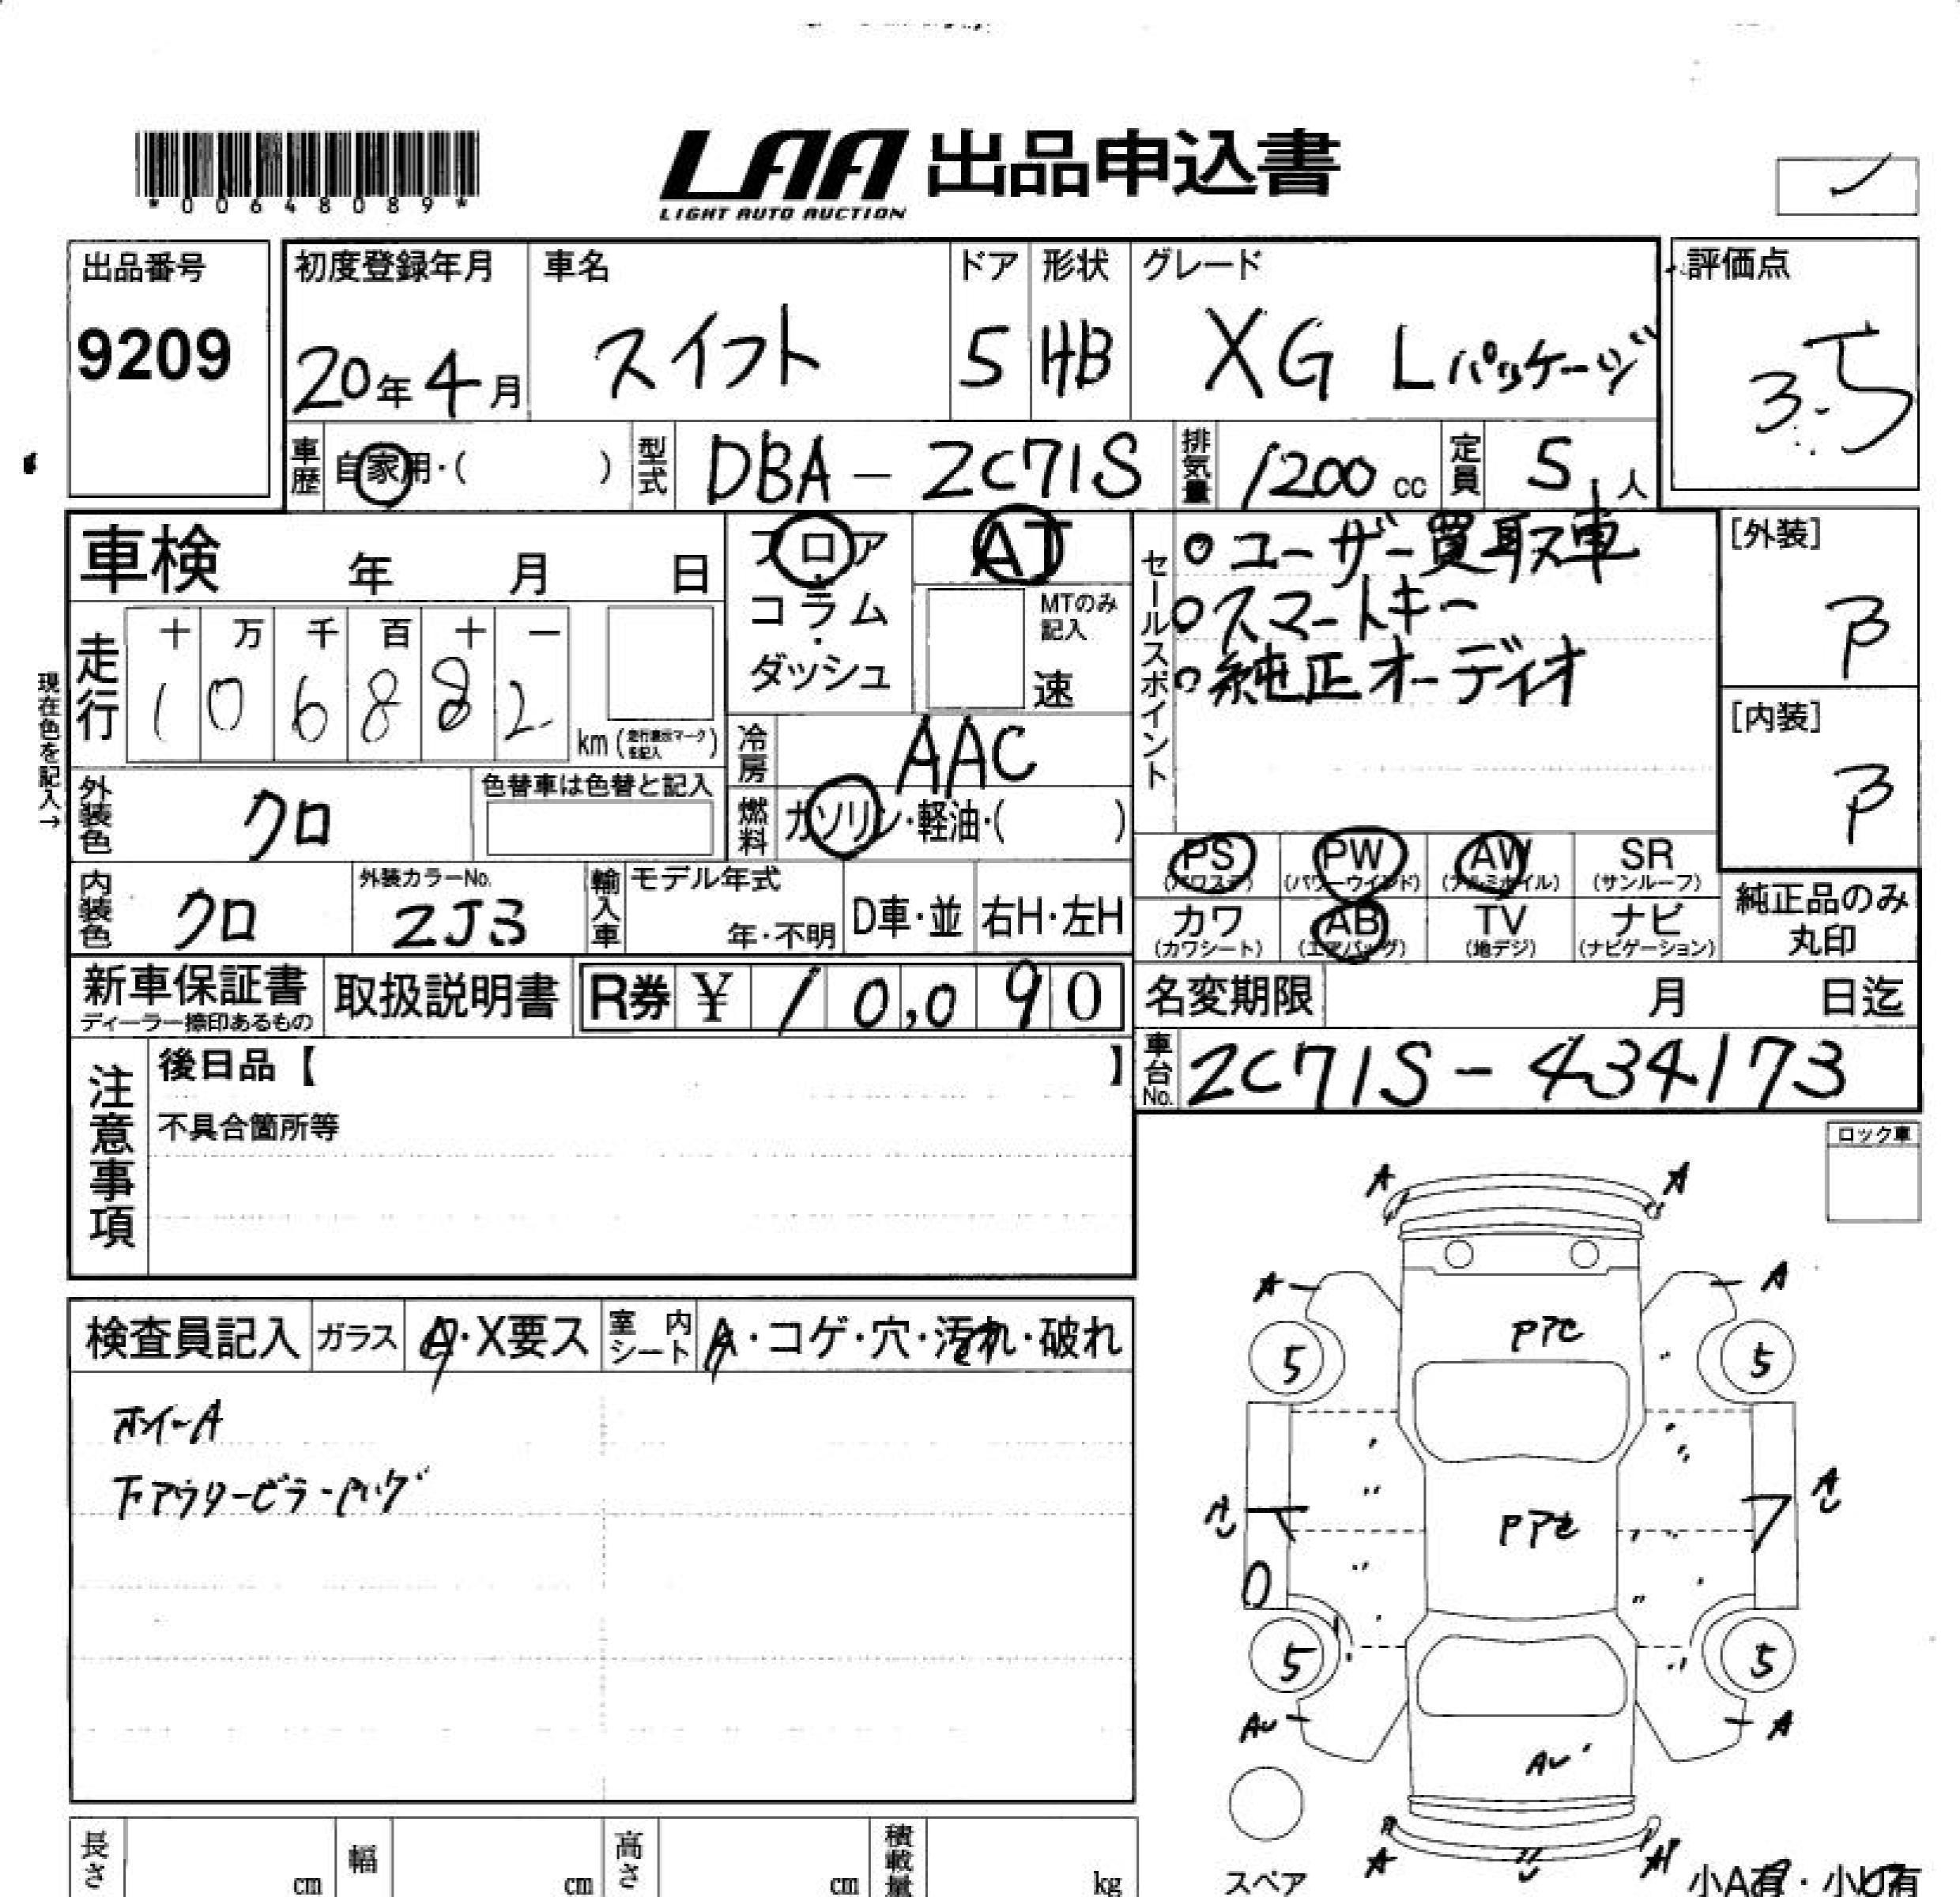 *00648089*
LAA 出品申込書
LIGHT AUTO AUCTION
出品番号
9209
初度登録年月
20年4月
車名
スイフト
ドア
5
形状
HB
グレード
XG Lパッケージ
評価点
3.5
車歴
自家用・( )
型式
DBA-ZC71S
排気量
1200 cc
定員
5人
車検 年 月 日
フロア
・
コラム
・
ダッシュ
AT
MTのみ
記入
速
セールスポイント
○ユーザー買取車
○スマートキー
○純正オーディオ
[外装]
B
[内装]
B
現在色を記入→
走行
十 万 千 百 十 一
1 0 6 8 8 2
km (走行表示マークを記入)
冷房
AAC
外装色
クロ
色替車は色替と記入
燃料
ガソリン・軽油・( )
PS
(パワステ)
PW
(パワーウインド)
AW
(アルミホイル)
SR
(サンルーフ)
カワ
(カワシート)
AB
(エアバッグ)
TV
(地デジ)
ナビ
(ナビゲーション)
純正品のみ
丸印
内装色
クロ
外装カラーNo.
ZJ3
輸入車
モデル年式
年・不明
D車・並
右H・左H
新車保証書
ディーラー捺印あるもの
取扱説明書
R券 ¥ 10,090
名変期限 月 日迄
車台No.
ZC71S-434173
注意事項
後日品【 】
不具合箇所等
ロック車
検査員記入
ガラス
A・X要ス
室内シート
A・コゲ・穴・汚れ・破れ
ホイールA
下アウターピラー
A
A
A
A
5
5
A
A
5
5
A
A
A
A
スペア
小A有・小U有
長さ cm
幅 cm
高さ cm
積載量 kg